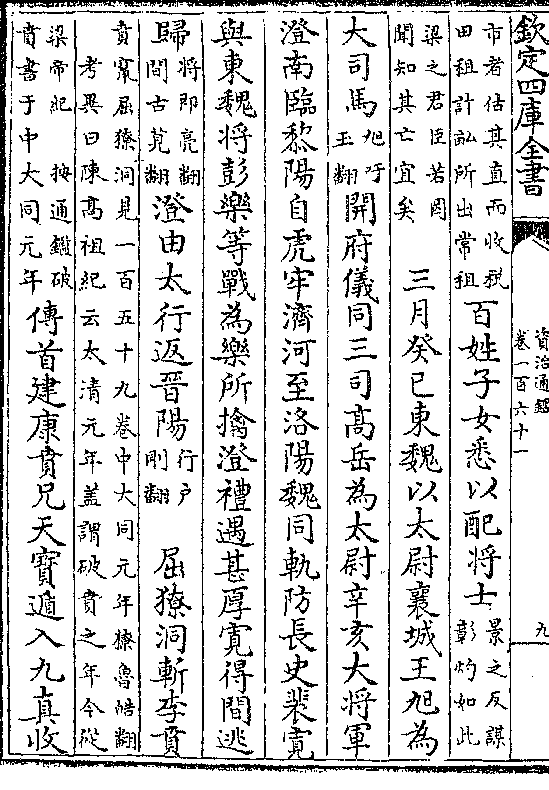 欽定四庫全書
資治通鑑
卷一百六十一
九
市者估其直而收税
田租計畝所出常租
百姓子女悉以配将士
景之反謀
彰灼如此
梁之君臣若罔
聞知其亡宜矣
三月癸巳東魏以太尉襄城王旭為
大司馬
旭吁
玉翻
開府儀同三司髙岳為太尉辛亥大将軍
澄南臨黎陽自虎牢濟河至洛陽魏同軌防長史裴寛
與東魏将彭樂等戰為樂所擒澄禮遇甚厚寛得間逃
歸
将即亮翻
間古莧翻
澄由太行返晉陽
行户
剛翻
屈獠洞斬李賁
賁竄屈獠洞見一百五十九卷中大同元年獠魯皓翻
考異曰陳髙祖紀云太清元年盖謂破賁之年今從
梁帝紀 按通鑑破
賁書于中大同元年
傳首建康賁兄天寶遁入九真收